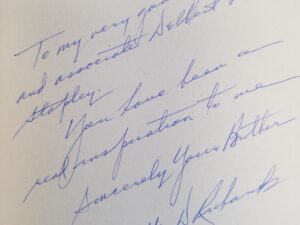 To my very goo
and associate Delbert
Stapley.
You have been a
real inspiration to me
Sincerely Your Brother
D Eubanks